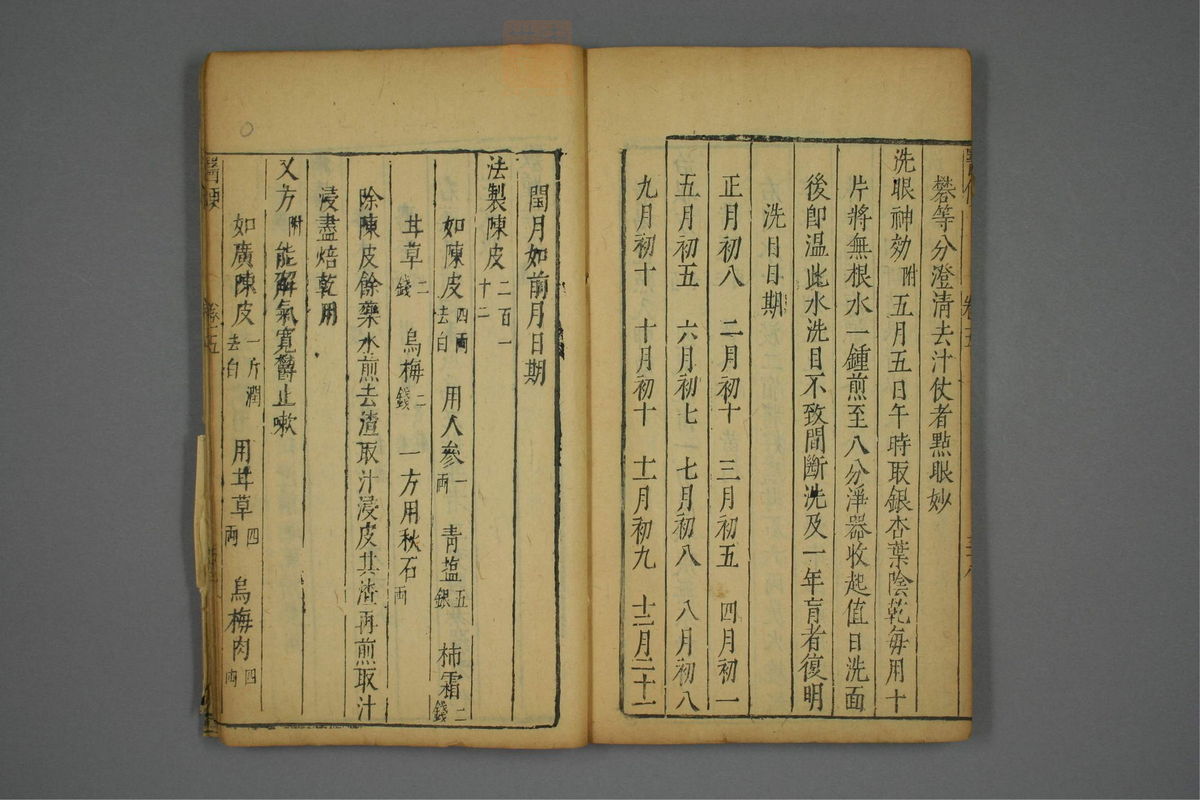 礬等分澄清去汁仗者點眼妙
洗眼神効附五月五日午時取銀杏葉陰乾每用十
片將無根水一鍾煎至八分淨器收起值日洗面
後即温此水洗目不致間斷洗及一年盲者復明
洗目日期
正月初八 二月初十 三月初五 四月初一
五月初五 六月初七 七月初八 八月初八
九月初十 十月初十 十一月初九 十二月二十一
閏月如前月日期
法製陳皮二百一十二
如陳皮四兩去白 用人參一兩 青塩五銀 柿霜二錢
甘草二錢 烏梅二錢 一方用秋石兩
除陳皮餘藥水煎去渣取汁浸皮其渣再煎取汁
浸盡焙乾用
又方附能解氣寬鬱止嗽
如廣陳皮一斤潤去白 用甘草四兩 烏梅肉四兩
卷五